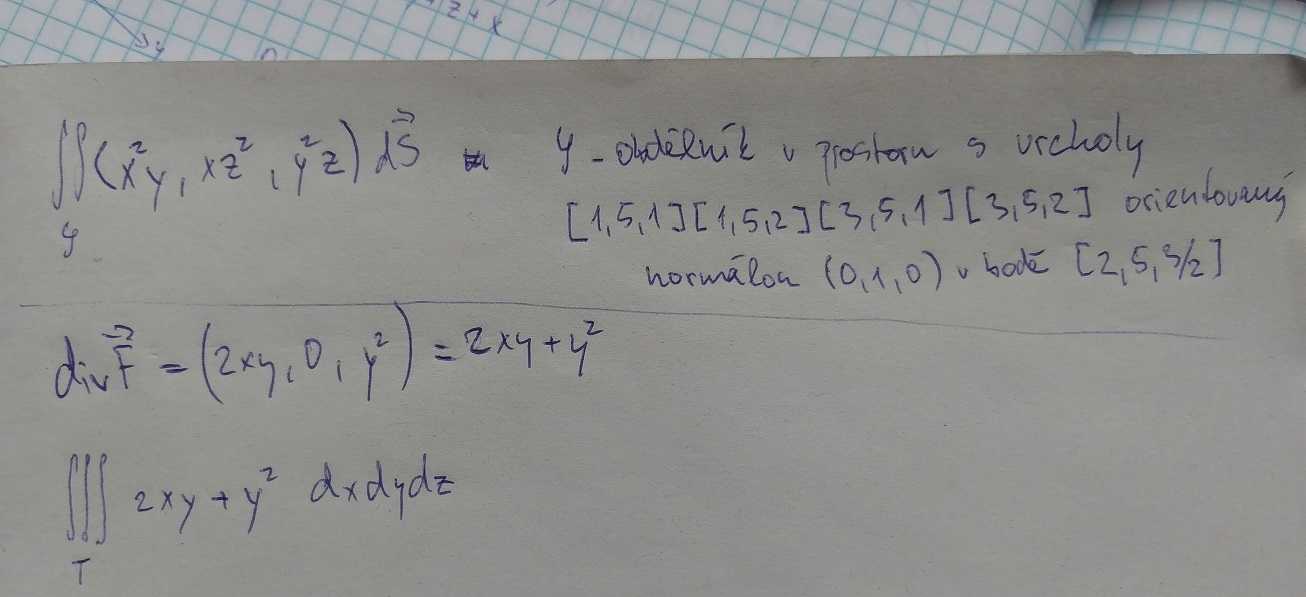 z + x
y
∬(x²y, xz², y²z) dS⃗ φ - obdélník v prostoru s vrcholy
φ [1,5,1][1,5,2][3,5,1][3,5,2] orientovaný
normálou (0,1,0) v bodě [2,5,3/2]
div F⃗ = (2xy, 0, y²) = 2xy + y²
∭ 2xy + y² dxdydz
T